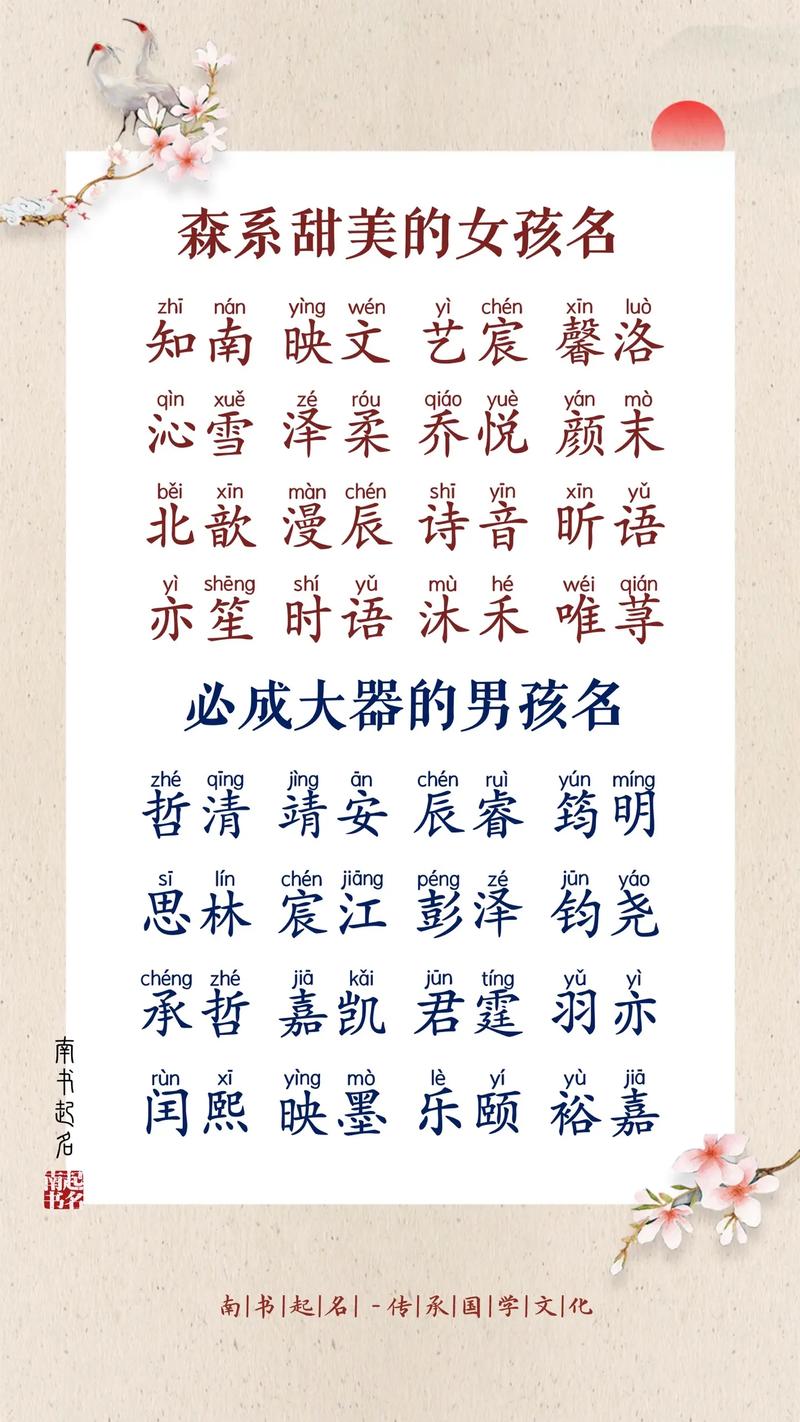 森系甜美的女孩名
zhī nán yìng wén yì chén xīn luò
知南 映文 艺宸 馨洛
qìn xuě zé róu qiáo yuè yán mò
沁雪 泽柔 乔悦 颜末
běi xīn màn chén shī yīn xīn yǔ
北歆 漫辰 诗音 昕语
yì shēng shí yǔ mù hé wéi qián
亦笙 时语 沐禾 唯荨
必成大器的男孩名
zhé qīng jìng ān chén ruì yún míng
哲清 靖安 辰睿 筠明
sī lín chén jiāng péng zé jūn yáo
思林 宸江 彭泽 钧尧
chéng zhé jiā kǎi jūn tíng yǔ yì
承哲 嘉凯 君霆 羽亦
rùn xī yìng mò lè yí yù jiā
闰熙 映墨 乐颐 裕嘉
南书起名
南书起名
南|书|起|名| -传|承|国|学|文|化